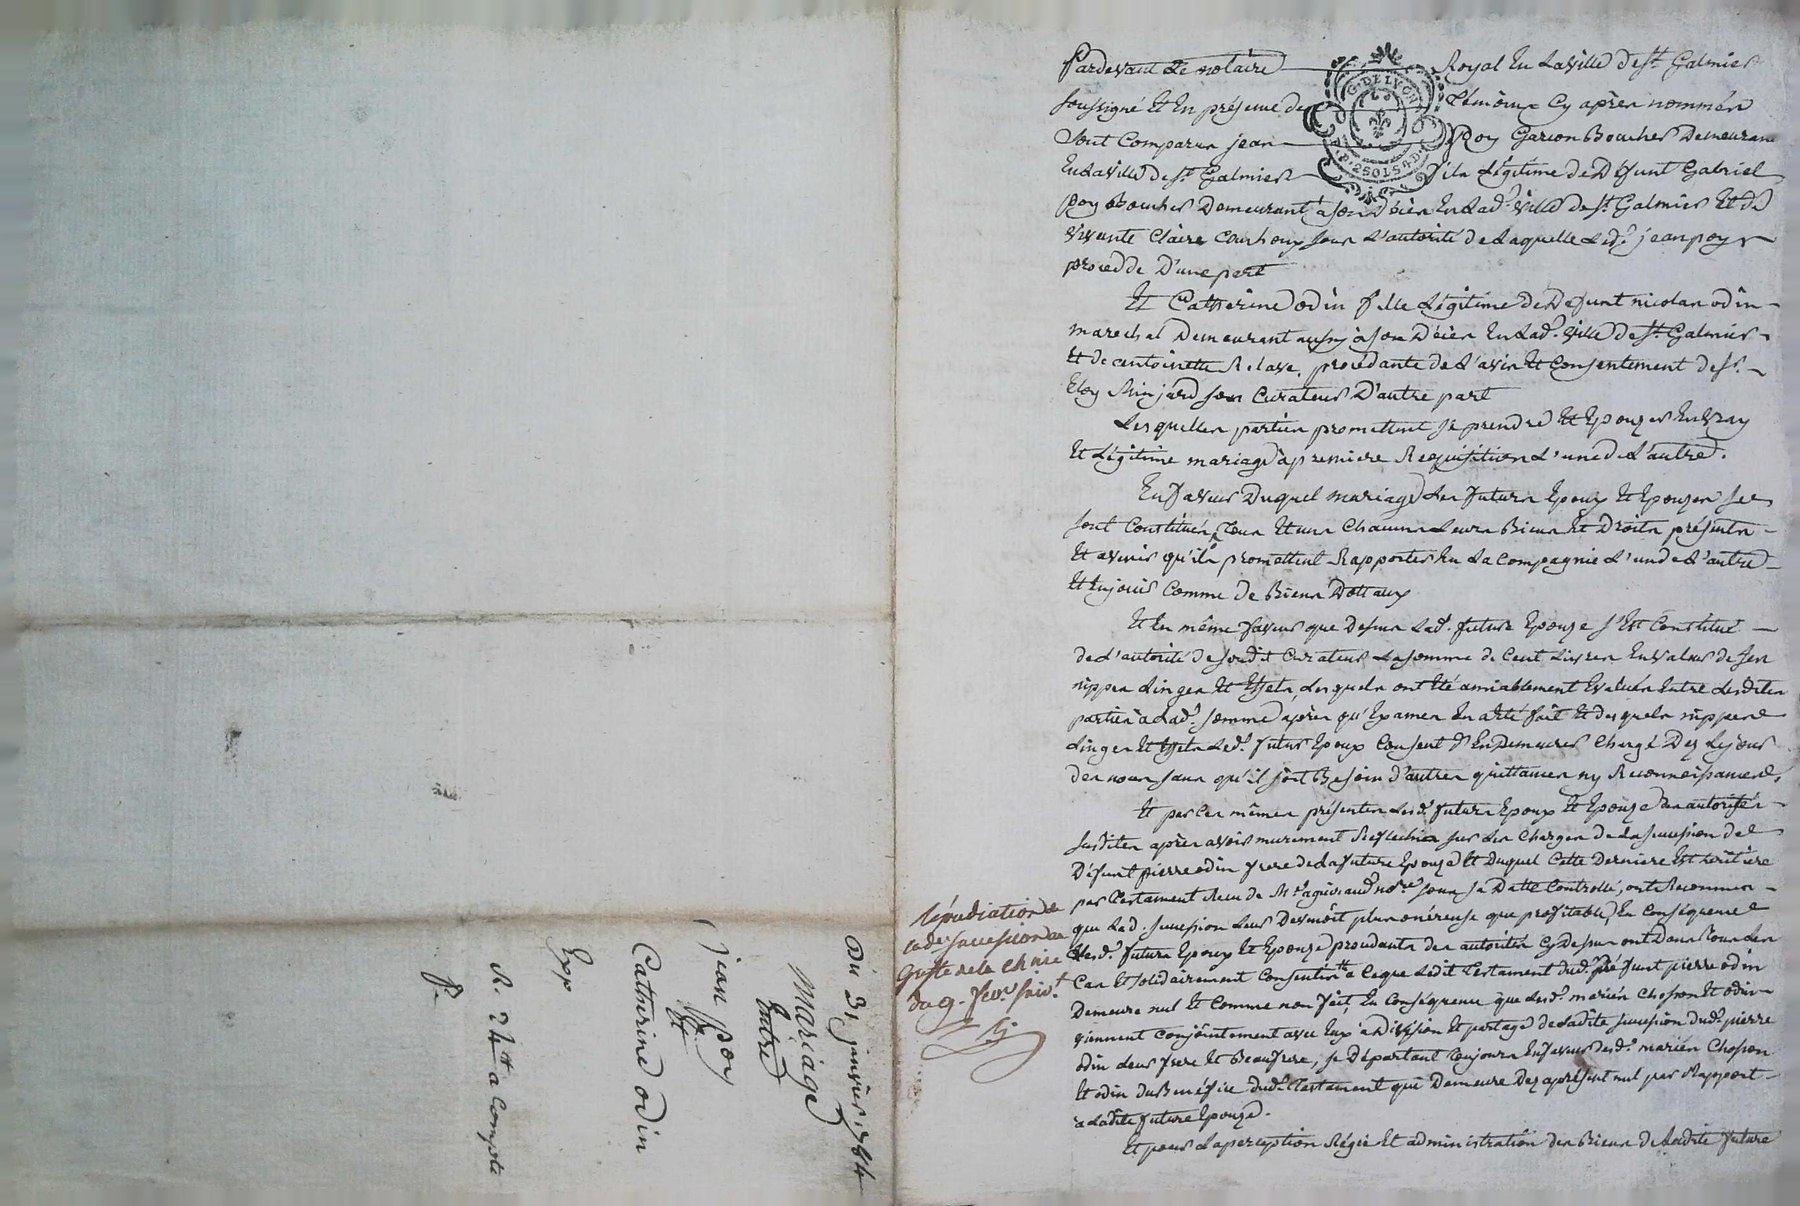 Du 31 janvier 1784
Mariage
Entre
jean Poy
Et
Catherine odin
Exp
R. 24tt a compte
Répudiation de
la de succession au
greffe de la
du 9. fevr. suivt
G. DE LYON
Pardevant Le notaire Royal En La ville de St. Galmier
soussigné Et En présence des témoins Cy après nommés
Sont Comparus jean Poy Garcon Boucher Demeurant
En La ville de St. Galmier fils Légitime de Défunt Gabriel
Poy Boucher Demeurant à son décès En Lad. ville de St. Galmier Et de
vivante Claire sous L'autorité de Laquelle Led. jean poy
procedde D'une part
Et Catherine odin fille Légitime de Defunt nicolas odin
marechal Demeurant aussy à son Décès En Lad. ville de St. Galmier
Et de antoinette Relave, procédante de L'avis Et Consentement de sr.
Eloy son Curateur D'autre part
Lesquelles parties promettent se prendre Et Epouzer En vray
Et Légitime mariage à premiere Requisition L'une de L'autre.
En faveur Duquel mariage Les futurs Epoux Et Epouze se
sont Constitués tous Et uns Chacuns Leurs Biens Et Droits présents
Et avenir qu'ils promettent Rapporter En La Compagnie L'un de L'autre
Et En jouir Comme de Biens Dottaux
Et En même faveur que Dessus Lad. future Epouze s'Est Constitué
de L'autorité de son dit Curateur La somme de Cent Livres En valeur de ses
nippes Linges Et Effets, Lesquels ont Eté amiablement Evalués Entre Lesdites
parties a Lad. somme après qu'Examen En a été fait Et desquels nippes
Linges Et Effets Led. futur Epoux Consent D'En Demeurer Chargé Dez Le jour
des noces sans qu'il soit Besoin d'autres quittances ny Reconnoissances.
Et par Ces mêmes présentes Lesd. futurs Epoux Et Epouze des autorités
susdites après avoir murement Reflechis sur Les Charges de La succession de
Défunt pierre odin frere de La future Epouze Et Duquel Cette Derniere Est héritière
par Testament Recu de Me. nore. sous sa Datte Controllé, ont Reconnus
que Lad. succession Leur Devenoit plus onéreuse que profitable, En Conséquence
Lesd. futurs Epoux Et Epouze procédants des autorités Cy Dessus ont Dans tous Les
Cas Et solidairement Consentis a Ceque Ledit Testament dud. Défunt pierre odin
Demeure nul Et Comme non fait, En Conséquence que Lesd. mariés Chosson Et odin
viennent Conjointement avec Eux a Division Et partage de Ladite succession dud. pierre
odin Leur frere Et Beaufrere, se Départant toujours En faveur desd. mariés Chosson
Et odin du Bénéfice dud. Testament qui Demeure Dez apresent nul par Rapport
a Ladite future Epouze.
Et pour La perception Régie Et administration des Biens de Ladite future